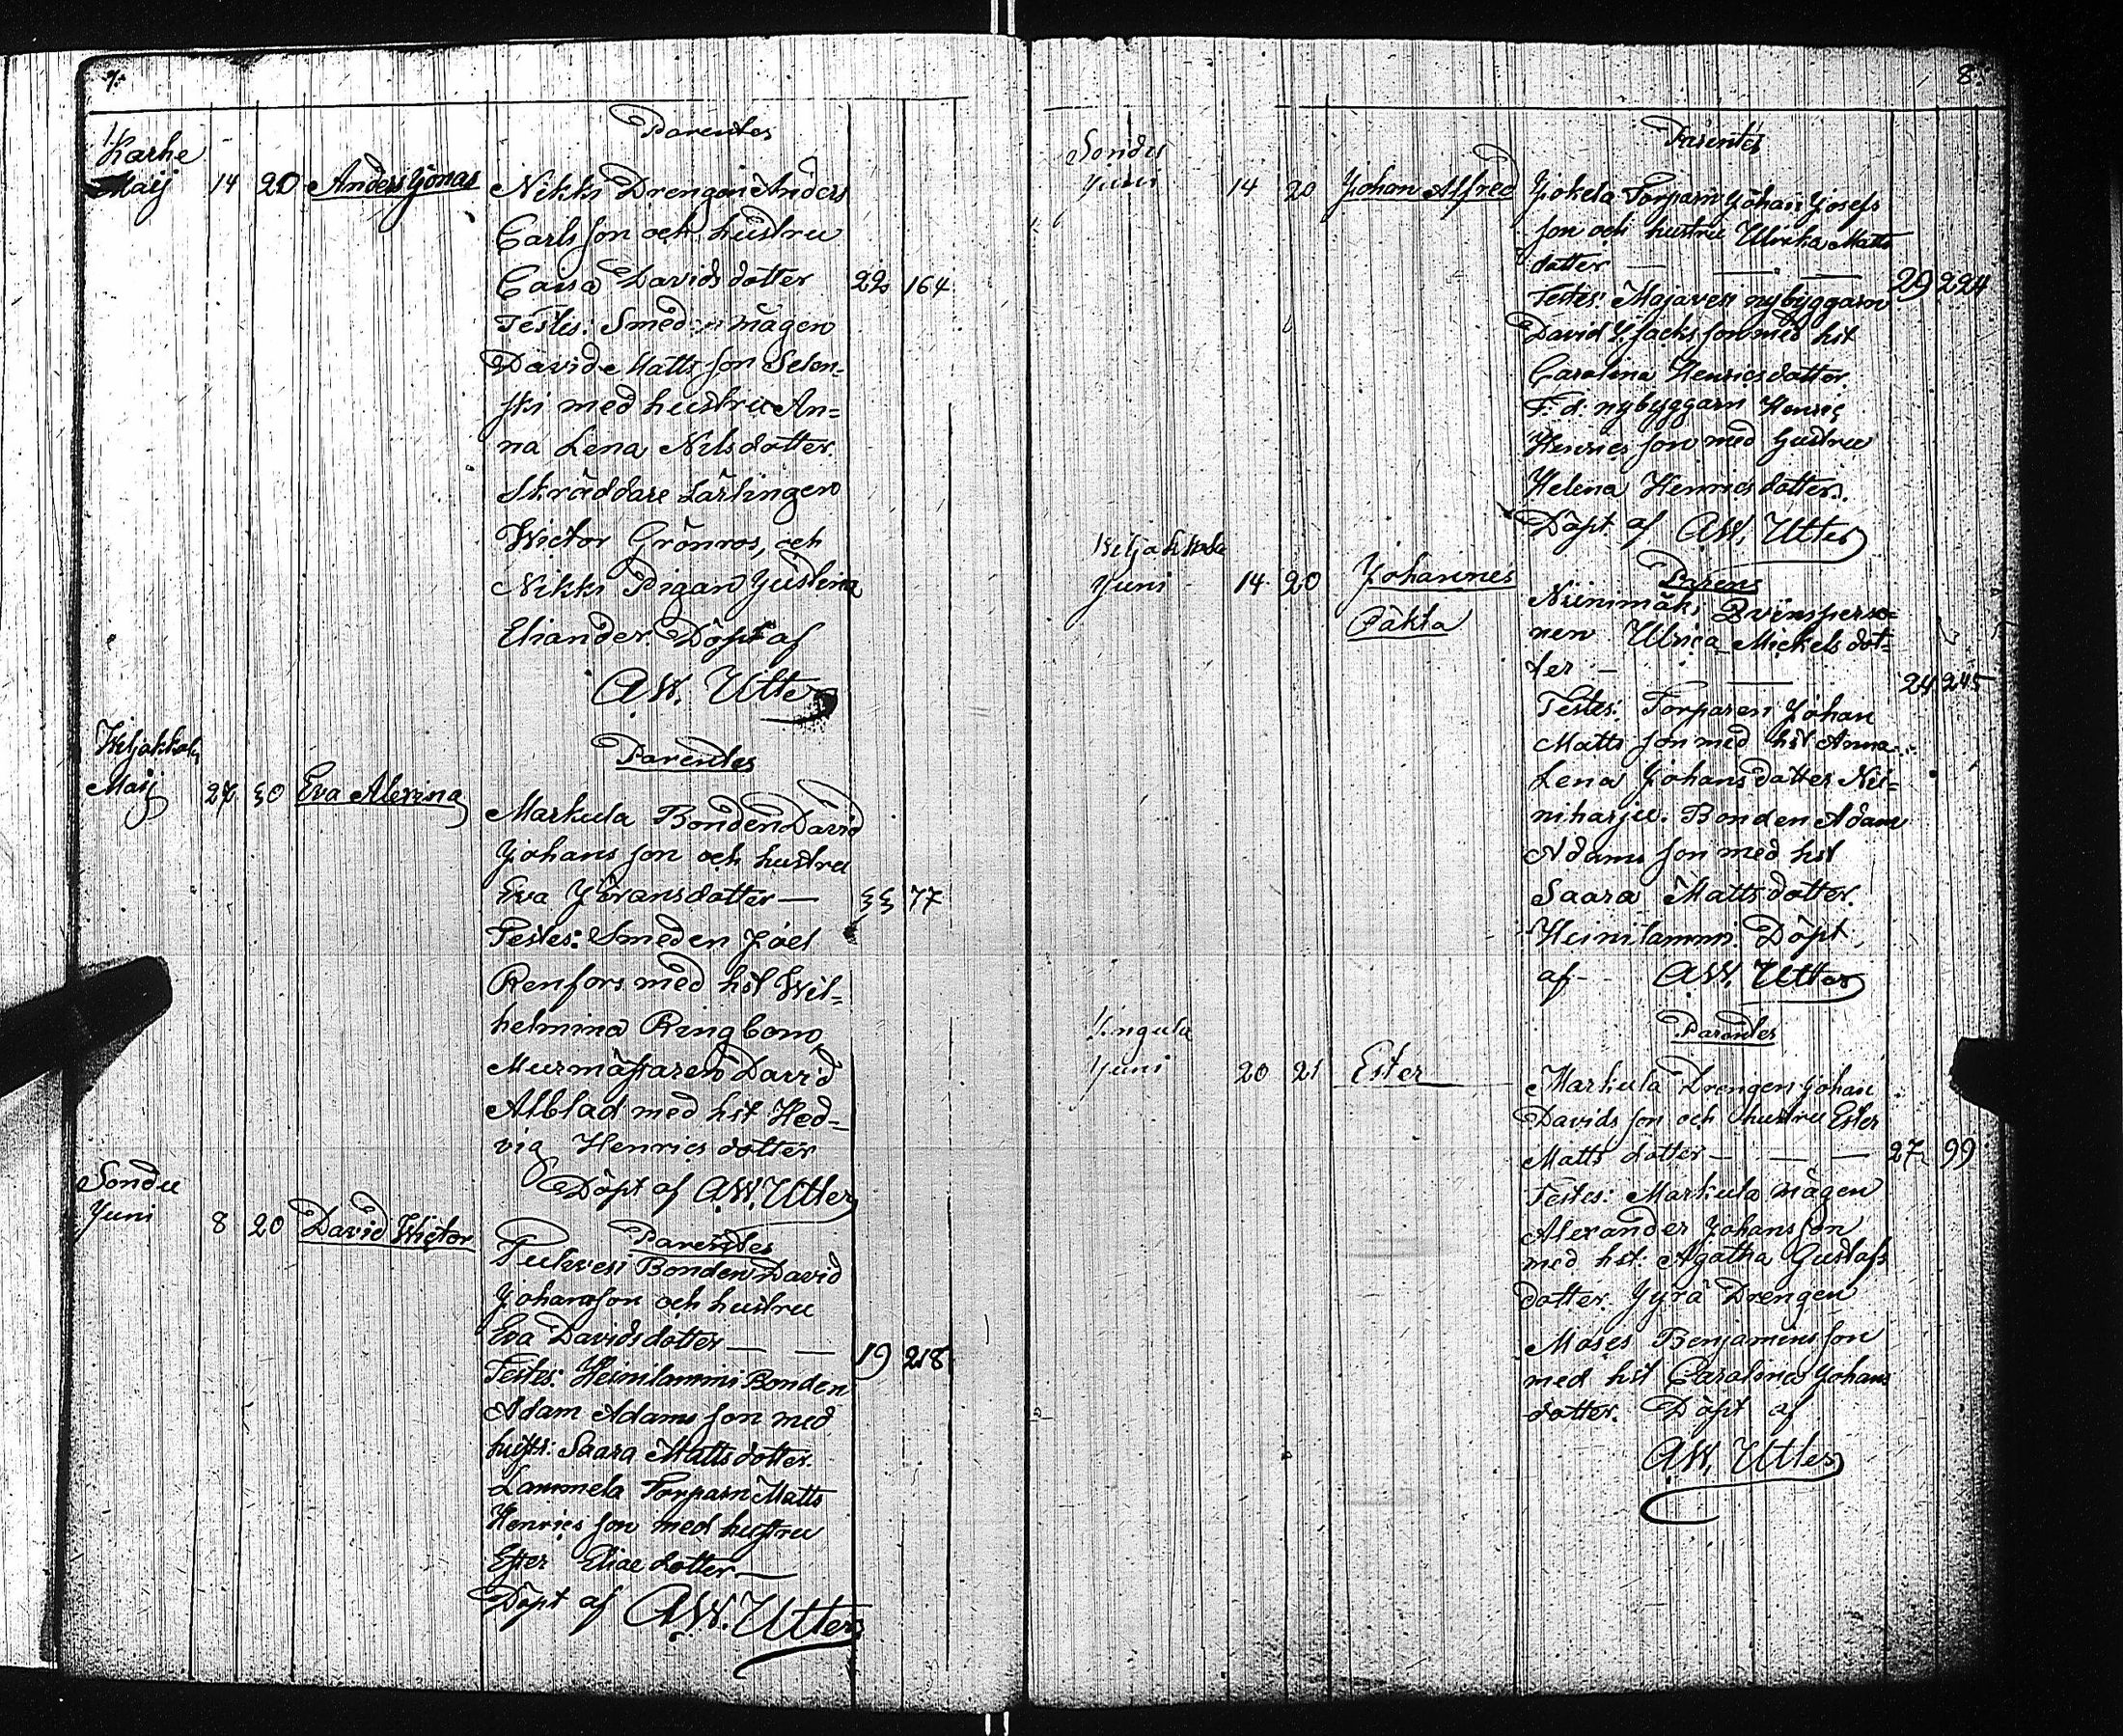 7.
Parentes
Karhe
Maij 14 20 Anders Jonas Nikki Drengen Anders
Carlsson och hustru
Caisa Davidsdotter 22 164
Testes: Smeds mågen
David Mattsson Selon-
ski med hustru An=
na Lena Nilsdotter.
Skräddare Lärlingen
Wictor Grönros, och
Nikki Pigan Justina
Eliander. Döpt af
A.W. Utter
Parentes
Weljakkala
Maij 27 30 Eva Alexina
Markula Bonden David
Johansson och hustru
Eva Jöransdotter — 33 77
Testes: Smeden Joel
Renfors med hst Wil=
helmina Ringbom
Murmästaren David
Alblad med hst Hed=
vig Henricsdotter
Döpt af A.W. Utter
Sondu
Juni 8 20 David Wictor
Parentes
Bonden David
Johansson och hustru
Eva Davidsdotter — — 19 218
Testes: Heinilammi Bonden
Adam Adamsson med
hustr: Saara Mattsdotter.
Lammela Torparn Matts
Henricsson med hustru
Ester Eliaedotter —
Döpt af A.W. Utter
8.
Parentes
Sondu
Juni 14 20 Johan Alfred Jokela Torparn Johan Josefs
son och hustru Ulrika Matts
dotter — — — 29 224
Testes: Majavesi nybyggarn
David Isacksson med hst
Carolina Henricsdotter.
F. d. nybyggarn Henric
Henricsson med hustru
Helena Henricsdotter.
Döpt af A.W. Utter
Weljakkala
Juni 14 20 Johannes
Oäkta
Parens
Niinimäki Qvinsperso=
nen Ulrica Mickelsdot=
ter — — 24 245
Testes: Torparen Johan
Mattsson med hst Anna
Lena Johansdotter Nii=
niharju. Bonden Adam
Adamsson med hst
Saara Mattsdotter.
Heinilammi. Döpt
af A.W. Utter
Parentes
Yingula
Juni 20 21 Ester
Markula Drengen Johan
Davidsson och hustru Ester
Mattsdotter — — — 27 99
Testes: Markula mågen
Alexander Johansson
med hst: Agatha Gustafs
dotter. Jyrä Drengen
Moses Benjaminsson
med hst Carolina Johans
dotter. Döpt af
A.W. Utter